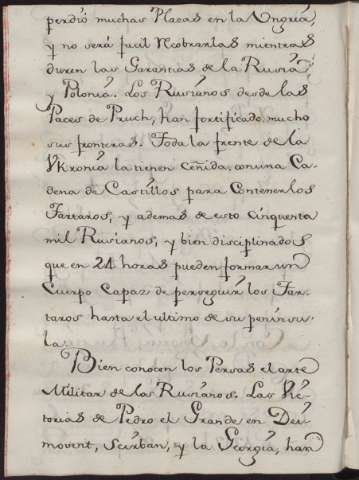 perdió muchas Plazas en la Ungria,
y no será facil recobrarlas mientras
duren las Garantias de la Rusia
y Polonia. Los Rusianos desde las
Paces de Pruch, han fortificado mucho
sus fronteras. Toda la frente de la
Ukronia la tienen ceñida, con una Ca-
dena de Castillos para Contener los
Tartaros, y ademas de esto Cinquenta
mil Rusianos, y bien disciplinados
que en 24 horas pueden formar un
Cuerpo Capaz de perseguir los Tar-
taros hasta el ultimo de su peninsu-
la.
Bien conocen los Persas el arte
Militar de los Rusianos. Las Vic-
torias de Pedro el Grande en
movent, y la Georgia, han